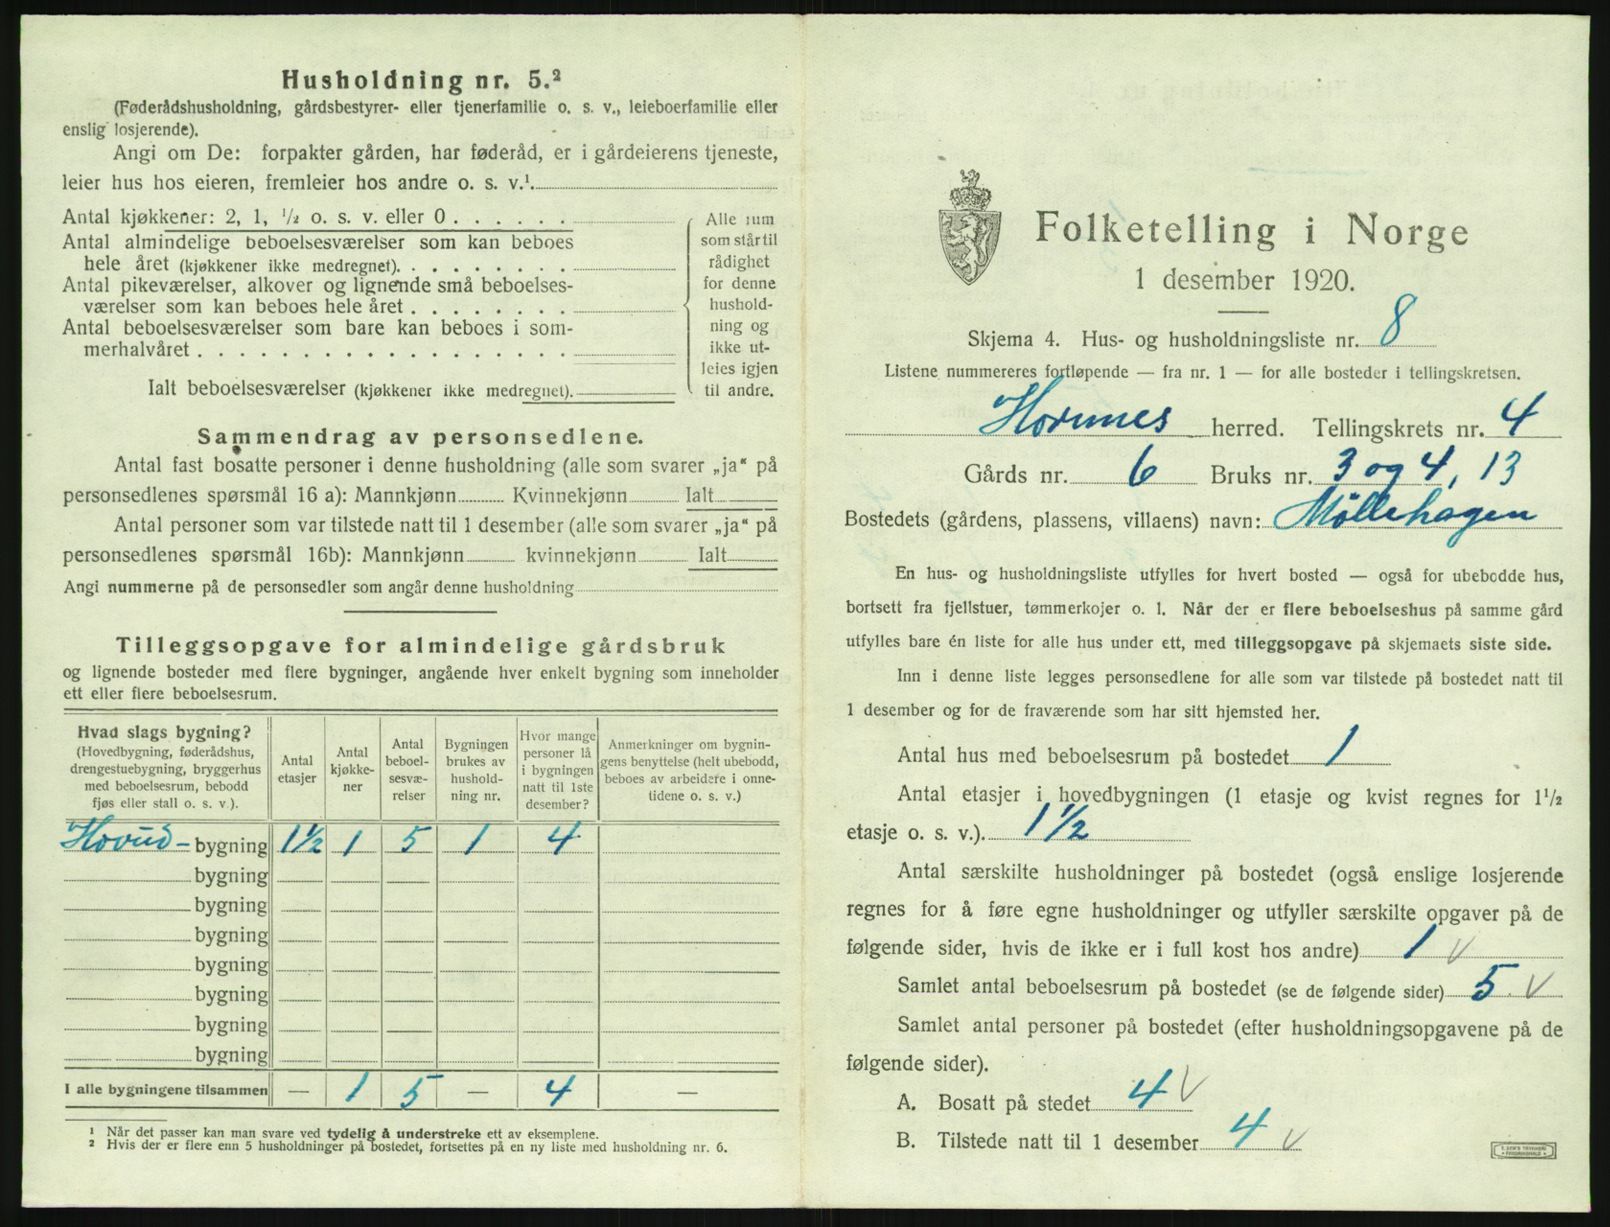 Husholdning nr. 5.²
(Føderådshusholdning, gårdsbestyrer- eller tjenerfamilie o. s. v., leieboerfamilie eller
enslig losjerende).
Angi om De: forpakter gården, har føderåd, er i gårdeierens tjeneste,
leier hus hos eieren, fremleier hos andre o. s. v.¹.
Antal kjøkkener: 2, 1, ½ o. s. v. eller 0
Antal almindelige beboelsesværelser som kan beboes
hele året (kjøkkener ikke medregnet).
Antal pikeværelser, alkover og lignende små beboelses-
værelser som kan beboes hele året
Antal beboelsesværelser som bare kan beboes i som-
merhalvåret
Ialt beboelsesværelser (kjøkkener ikke medregnet).
Alle rum
som står til
rådighet
for denne
hushold-
ning og
ikke ut-
leies igjen
til andre.
Sammendrag av personsedlene.
Antal fast bosatte personer i denne husholdning (alle som svarer „ja“ på
personsedlenes spørsmål 16 a): Mannkjønn Kvinnekjønn Ialt
Antal personer som var tilstede natt til 1 desember (alle som svarer „ja“ på
personsedlenes spørsmål 16b): Mannkjønn kvinnekjønn Ialt
Angi nummerne på de personsedler som angår denne husholdning
Tilleggsopgave for almindelige gårdsbruk
og lignende bosteder med flere bygninger, angående hver enkelt bygning som inneholder
ett eller flere beboelsesrum.
Hvad slags bygning?
(Hovedbygning, føderådshus,
drengestuebygning, bryggerhus
med beboelsesrum, bebodd
fjøs eller stall o. s. v.).
Antal
etasjer
Antal
kjøkke-
ner
Antal
beboel-
sesvæ-
relser
Bygningen
brukes av
hushold-
ning nr.
Hvor mange
personer lå
i bygningen
natt til 1ste
desember?
Anmerkninger om bygnin-
gens benyttelse (helt ubebodd,
beboes av arbeidere i onne-
tidene o. s. v.)
Hovud- bygning 1½ 1 5 1 4
bygning
bygning
bygning
bygning
bygning
bygning
bygning
I alle bygningene tilsammen — 1 5 — 4 —
¹ Når det passer kan man svare ved tydelig å understreke ett av eksemplene.
² Hvis der er flere enn 5 husholdninger på bostedet, fortsettes på en ny liste med husholdning nr. 6.
Folketelling i Norge
1 desember 1920.
Skjema 4. Hus- og husholdningsliste nr. 8
Listene nummereres fortløpende — fra nr. 1 — for alle bosteder i tellingskretsen.
Hornnes herred. Tellingskrets nr. 4
Gårds nr. 6 Bruks nr. 3 og 4, 13
Bostedets (gårdens, plassens, villaens) navn: Møllehagen
En hus- og husholdningsliste utfylles for hvert bosted — også for ubebodde hus,
bortsett fra fjellstuer, tømmerkojer o. l. Når der er flere beboelseshus på samme gård
utfylles bare én liste for alle hus under ett, med tilleggsopgave på skjemaets siste side.
Inn i denne liste legges personsedlene for alle som var tilstede på bostedet natt til
1 desember og for de fraværende som har sitt hjemsted her.
Antal hus med beboelsesrum på bostedet 1
Antal etasjer i hovedbygningen (1 etasje og kvist regnes for 1½
etasje o. s. v.). 1½
Antal særskilte husholdninger på bostedet (også enslige losjerende
regnes for å føre egne husholdninger og utfyller særskilte opgaver på de
følgende sider, hvis de ikke er i full kost hos andre) 1 v
Samlet antal beboelsesrum på bostedet (se de følgende sider) 5 v
Samlet antal personer på bostedet (efter husholdningsopgavene på de
følgende sider).
A. Bosatt på stedet 4 v
B. Tilstede natt til 1 desember 4 v